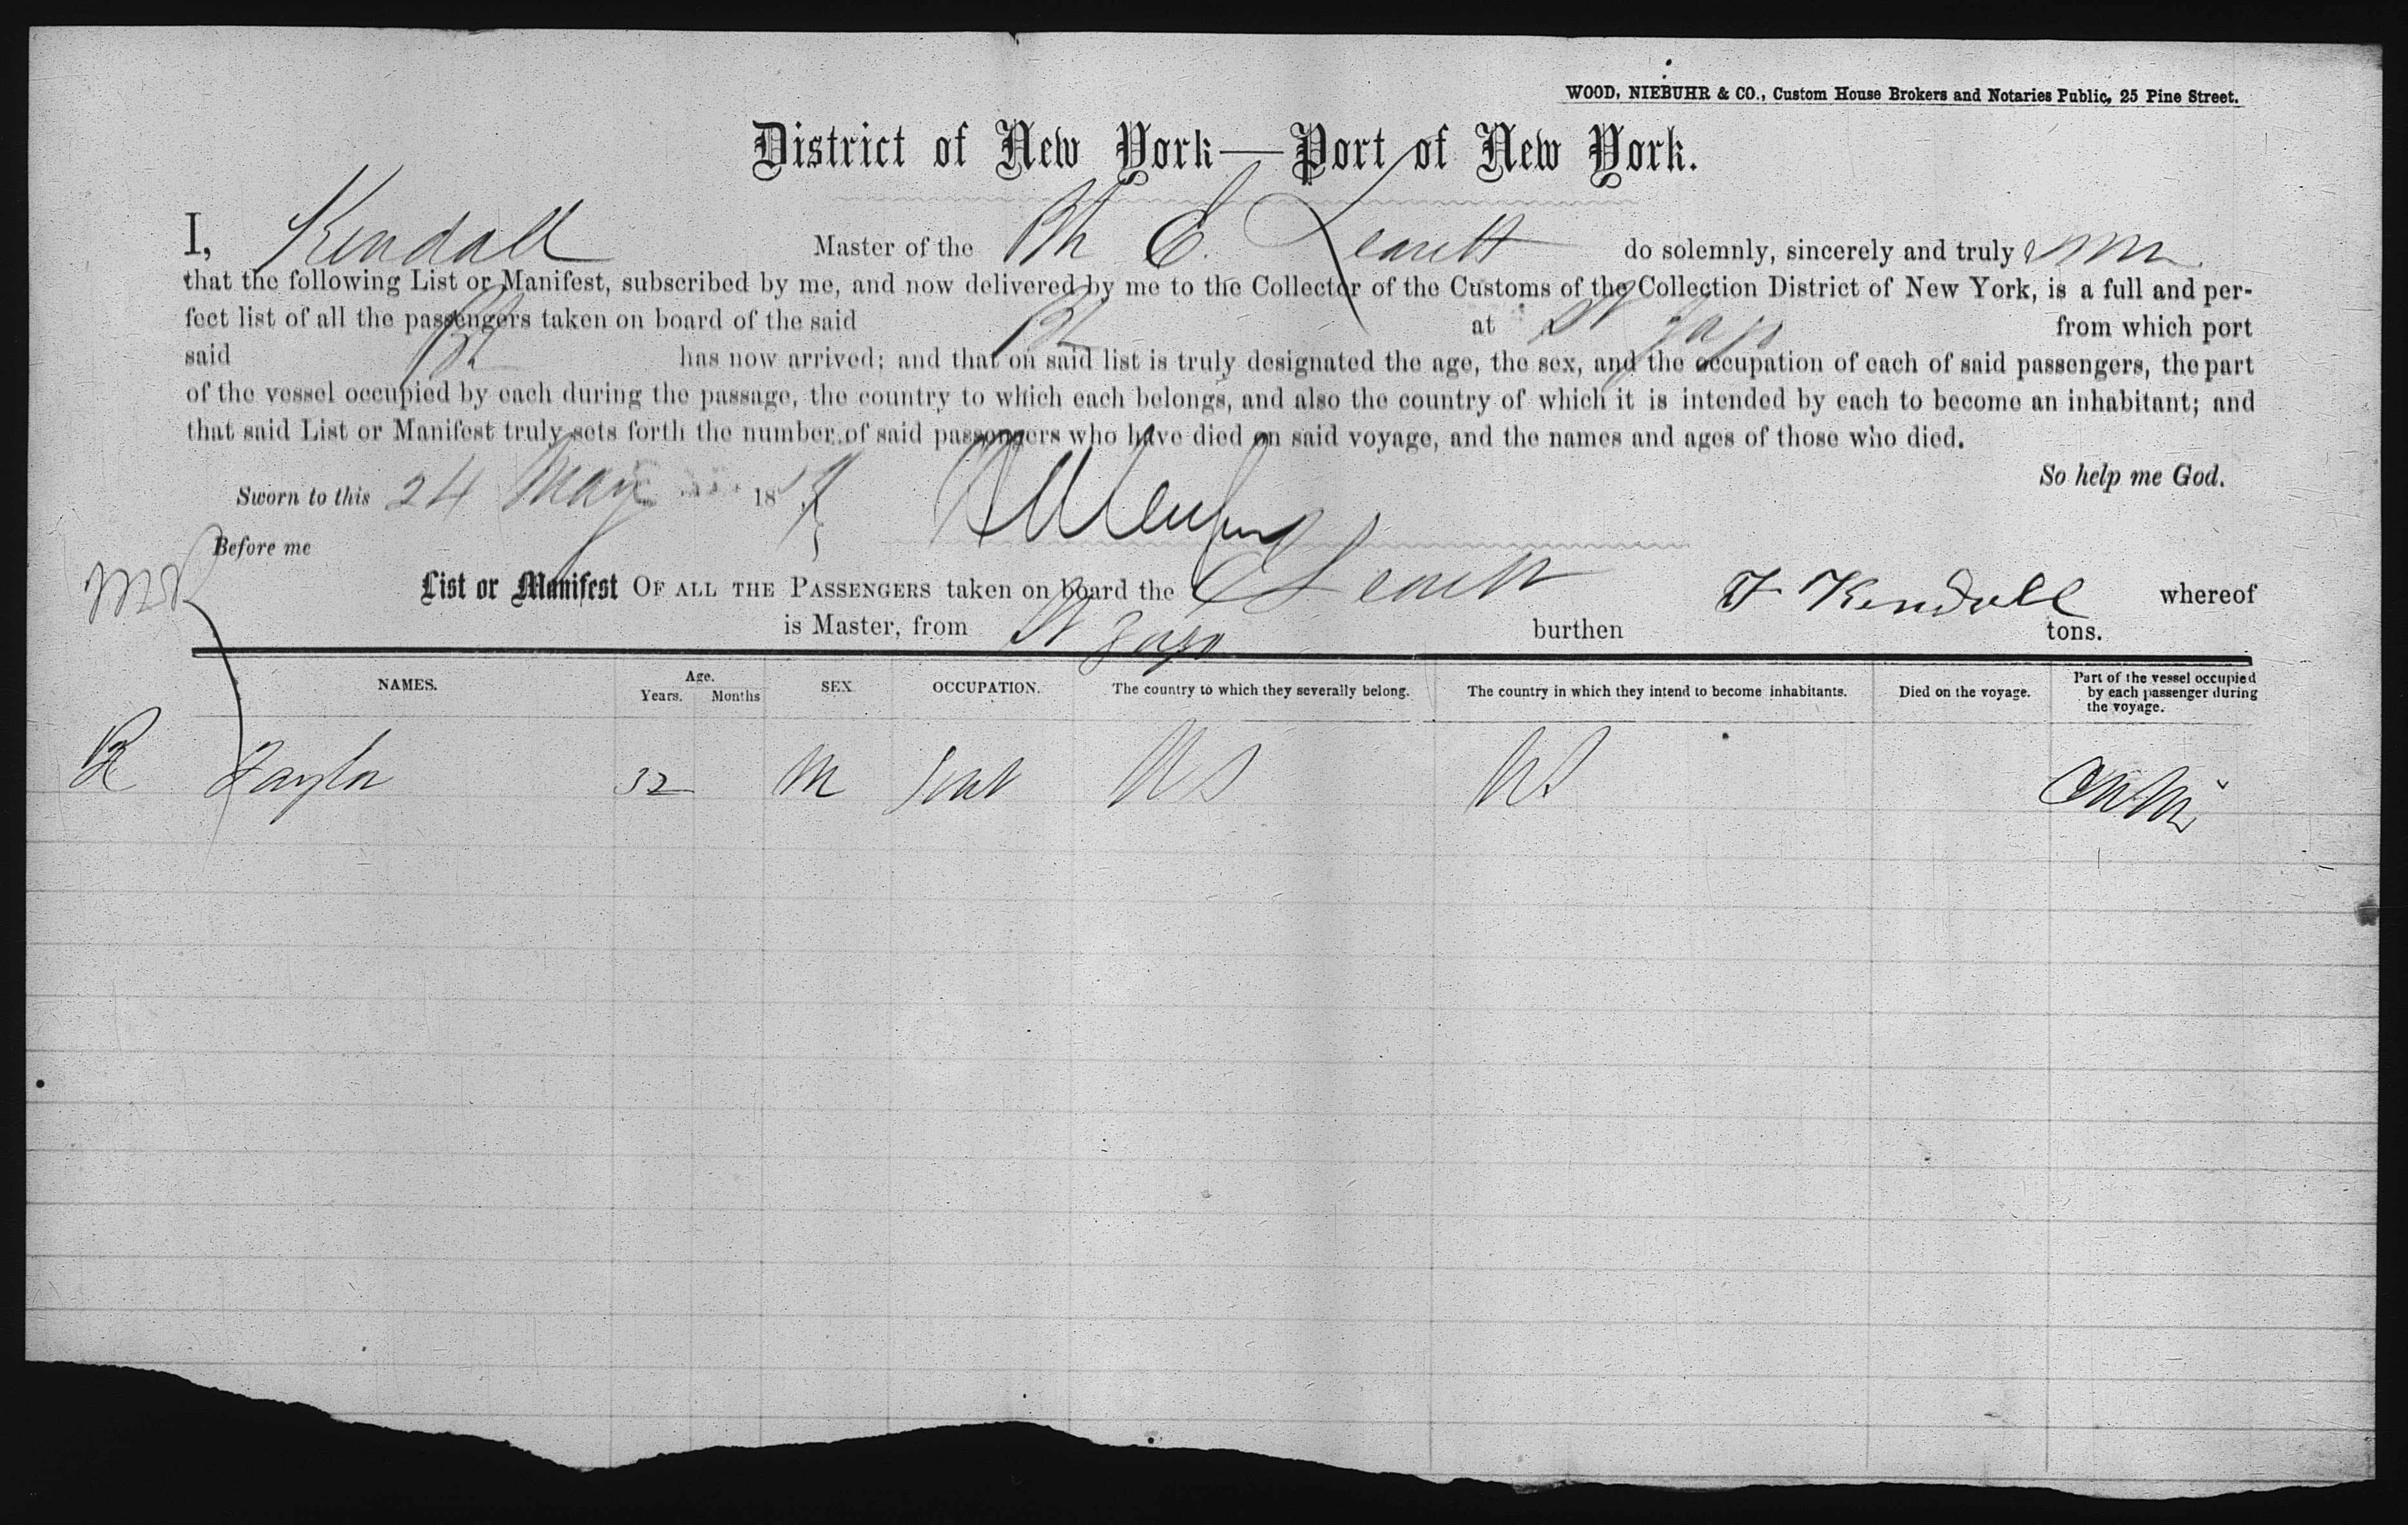 WOOD, NIEBUHR & CO., Custom House Brokers and Notaries Public, 25 Pine Street.
District of New York—Port of New York.
I, Kendall Master of the E. Leavitt do solemnly, sincerely and truly
that the following List or Manifest, subscribed by me, and now delivered by me to the Collector of the Customs of the Collection District of New York, is a full and per-
fect list of all the passengers taken on board of the said at St Jago from which port
said has now arrived; and that on said list is truly designated the age, the sex, and the occupation of each of said passengers, the part
of the vessel occupied by each during the passage, the country to which each belongs, and also the country of which it is intended by each to become an inhabitant; and
that said List or Manifest truly sets forth the number of said passengers who have died on said voyage, and the names and ages of those who died.
So help me God.
Sworn to this 24 May 187
Before me
List or Manifest OF ALL THE PASSENGERS taken on board the E Leavitt F Kendall whereof
is Master, from St Jago burthen tons.
NAMES. Age. Years. Months SEX OCCUPATION. The country to which they severally belong. The country in which they intend to become inhabitants. Died on the voyage. Part of the vessel occupied by each passenger during the voyage.
R Taylor 32 M US US Cabin